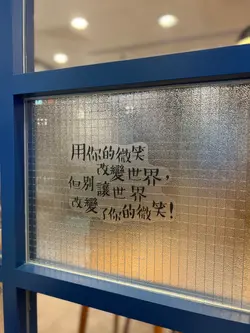 用你的微笑
改變世界，
但別讓世界
改變了你的微笑！